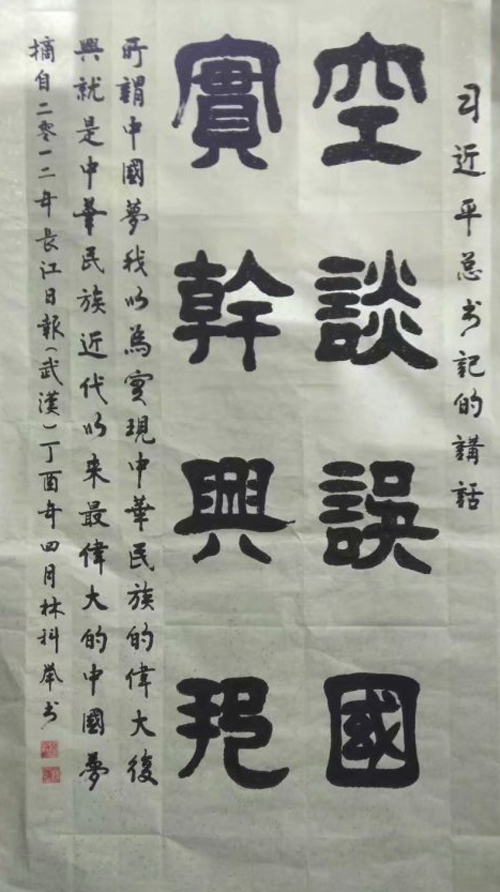 习近平总书記的講話
空談誤國
實幹興邦
所謂中國夢我以為實現中華民族的偉大復
興就是中華民族近代以来最偉大的中國夢
摘自二零一二年長江日報(武漢)丁酉年四月林科举书